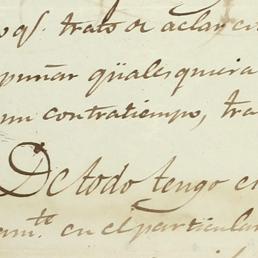 qᵉ. trato de aclar
puñar qüalesquiera
un contratiempo, tra
De todo tengo e
amᵗᵉ. en el particular